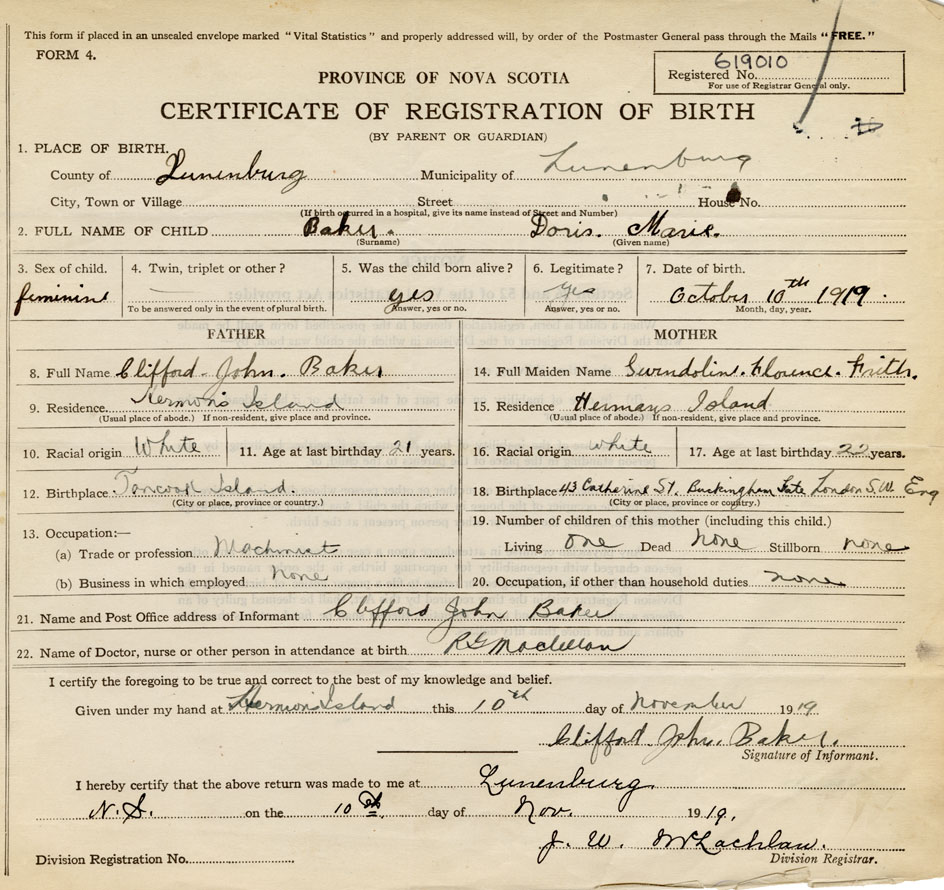 This form if placed in an unsealed envelope marked "Vital Statistics" and properly addressed will, by order of the Postmaster General pass through the Mails "FREE."
FORM 4.
619010
Registered No.
For use of Registrar General only.
PROVINCE OF NOVA SCOTIA
CERTIFICATE OF REGISTRATION OF BIRTH
(BY PARENT OR GUARDIAN)
1. PLACE OF BIRTH.
County of Lunenburg Municipality of Lunenburg
City, Town or Village Street House No.
(If birth occurred in a hospital, give its name instead of Street and Number)
2. FULL NAME OF CHILD Baker. Doris. Marie.
(Surname) (Given name)
3. Sex of child. 4. Twin, triplet or other? 5. Was the child born alive? 6. Legitimate? 7. Date of birth.
feminine yes yes October 10th 1919.
To be answered only in the event of plural birth. Answer, yes or no. Answer, yes or no. Month, day, year.
FATHER MOTHER
8. Full Name Clifford. John. Baker 14. Full Maiden Name Gwendoline. Florence. Frith.
9. Residence. Hermon's Island 15. Residence Hermans Island
(Usual place of abode.) If non-resident, give place and province. (Usual place of abode.) If non-resident, give place and province.
10. Racial origin White 11. Age at last birthday 21 years. 16. Racial origin white 17. Age at last birthday 22 years.
12. Birthplace Tancook Island. 18. Birthplace 43 Catherine St. Buckingham Gate London S.W. Eng
(City or place, province or country.) (City or place, province or country.)
13. Occupation:— 19. Number of children of this mother (including this child.)
(a) Trade or profession Machinist Living one Dead none Stillborn none
(b) Business in which employed none 20. Occupation, if other than household duties none
21. Name and Post Office address of Informant Clifford John Baker
22. Name of Doctor, nurse or other person in attendance at birth Maclellan
I certify the foregoing to be true and correct to the best of my knowledge and belief.
Given under my hand at Hermon Island this 10th day of November 1919
Clifford. John. Baker.
Signature of Informant.
I hereby certify that the above return was made to me at Lunenburg
N.S. on the 10th day of Nov. 1919.
J. W. McLachlan.
Division Registration No. Division Registrar.